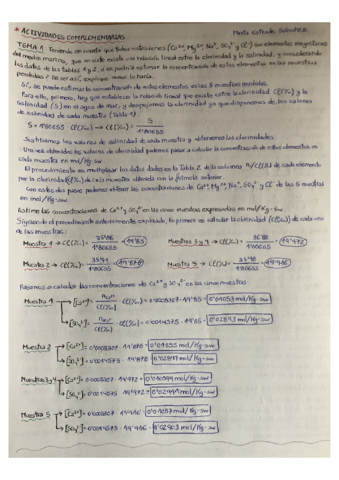 * ACTIVIDADES COMPLEMENTARIAS
María Estrada
TEMA 1. Teniendo en cuenta que todos estos iones (Ca²⁺, Mg²⁺, Na⁺, SO₄²⁻ y Cl⁻) son elementos mayoritarios
del medio marino, que en éste existe una relación lineal entre la clorinidad y la salinidad, y considerando
los datos de las tablas 1 y 2, ¿se podría estimar la concentración de estos elementos en las muestras
perdidas? De ser así, explique cómo lo haría.
Sí, se puede estimar la concentración de estos elementos en las 5 muestras perdidas.
Para ello, primero, hay que establecer la relación lineal que existe entre la clorinidad Cl(‰) y la
Salinidad (S) en el agua de mar, y despejamos la clorinidad ya que disponemos de los valores
de salinidad de cada muestra (Tabla 1)
S = 1'80655 Cl(‰) → Cl(‰) = S / 1'80655
Sustituimos los valores de salinidad de cada muestra y obtenemos las clorinidades.
Una vez obtenidas las clorinidades podemos pasar a calcular la concentración de estos elementos en
cada muestra en mol/Kg-sw
El procedimiento es multiplicar los datos dados en la Tabla 2 de la columna ni/Cl(‰) de cada elemento
por la clorinidad (‰) de cada muestra obtenida con la fórmula anterior.
Con estos dos pasos podemos obtener las concentraciones de Ca²⁺, Mg²⁺, Na⁺, SO₄²⁻ y Cl⁻ de las 5 muestras
en mol/Kg-sw.
Estime las concentraciones de Ca²⁺ y SO₄²⁻ en las cinco muestras expresadas en mol/Kg-sw
Siguiendo el procedimiento anteriormente explicado, lo primero es calcular la clorinidad (Cl(‰)) de cada una
de las muestras:
Muestra 1 → Cl(‰) = 35'86 / 1'80655 = 19'85
Muestras 3 y 4 → Cl(‰) = 36'08 / 1'80655 = 19'972
Muestra 2 → Cl(‰) = 35'91 / 1'80655 = 19'878
Muestra 5 → Cl(‰) = / 1'80655 =
Pasamos a calcular las concentraciones de Ca²⁺ y SO₄²⁻ en las cinco muestras
Muestra 1 → [Ca²⁺] = nCa²⁺ / Cl(‰) · Cl(‰) = 0'0005307 · 19'85 = 0'01053 mol/Kg-sw
→ [SO₄²⁻] = nSO₄²⁻ / Cl(‰) · Cl(‰) = 0'0014575 · 19'85 = 0'02893 mol/Kg-sw
Muestra 2 → [Ca²⁺] = 0'0005307 · 19'878 = 0'01055 mol/Kg-sw
→ [SO₄²⁻] = 0'0014575 · 19'878 = 0'02897 mol/Kg-sw
Muestras 3 y 4 → [Ca²⁺] = 0'0005307 · 19'972 = mol/Kg-sw
→ [SO₄²⁻] = 0'0014575 · 19'972 = mol/Kg-sw
Muestra 5 → [Ca²⁺] = 0'0005307 · = 0'01057 mol/Kg-sw
→ [SO₄²⁻] = 0'0014575 · = 0'02903 mol/Kg-sw